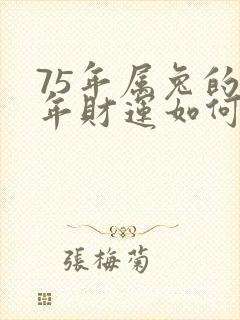 75年属兔的
年财运如何
張梅菊